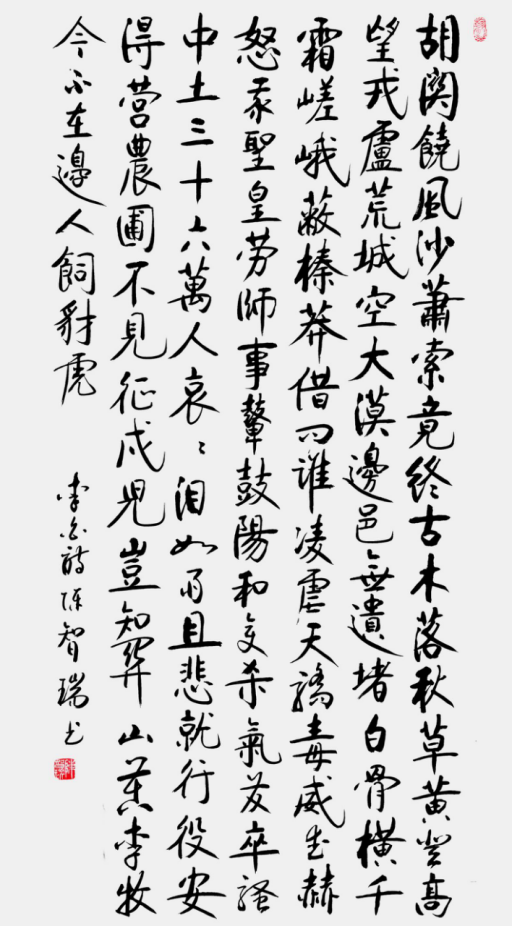 胡関饒風沙蕭索竟終古木落秋草黃登高
望戎盧荒城空大漠邊邑無遺堵白骨橫千
霜嵯峨蔽榛莽借問誰凌虐天驕毒威武赫
怒我聖皇勞師事鼙鼓陽和變殺氣發卒騷
中土三十六萬人哀々泪如雨且悲就行役安
得營農圃不見征戍兒豈知關山苦李牧
今不在邊人飼豺虎
李白詩陳智瑞書